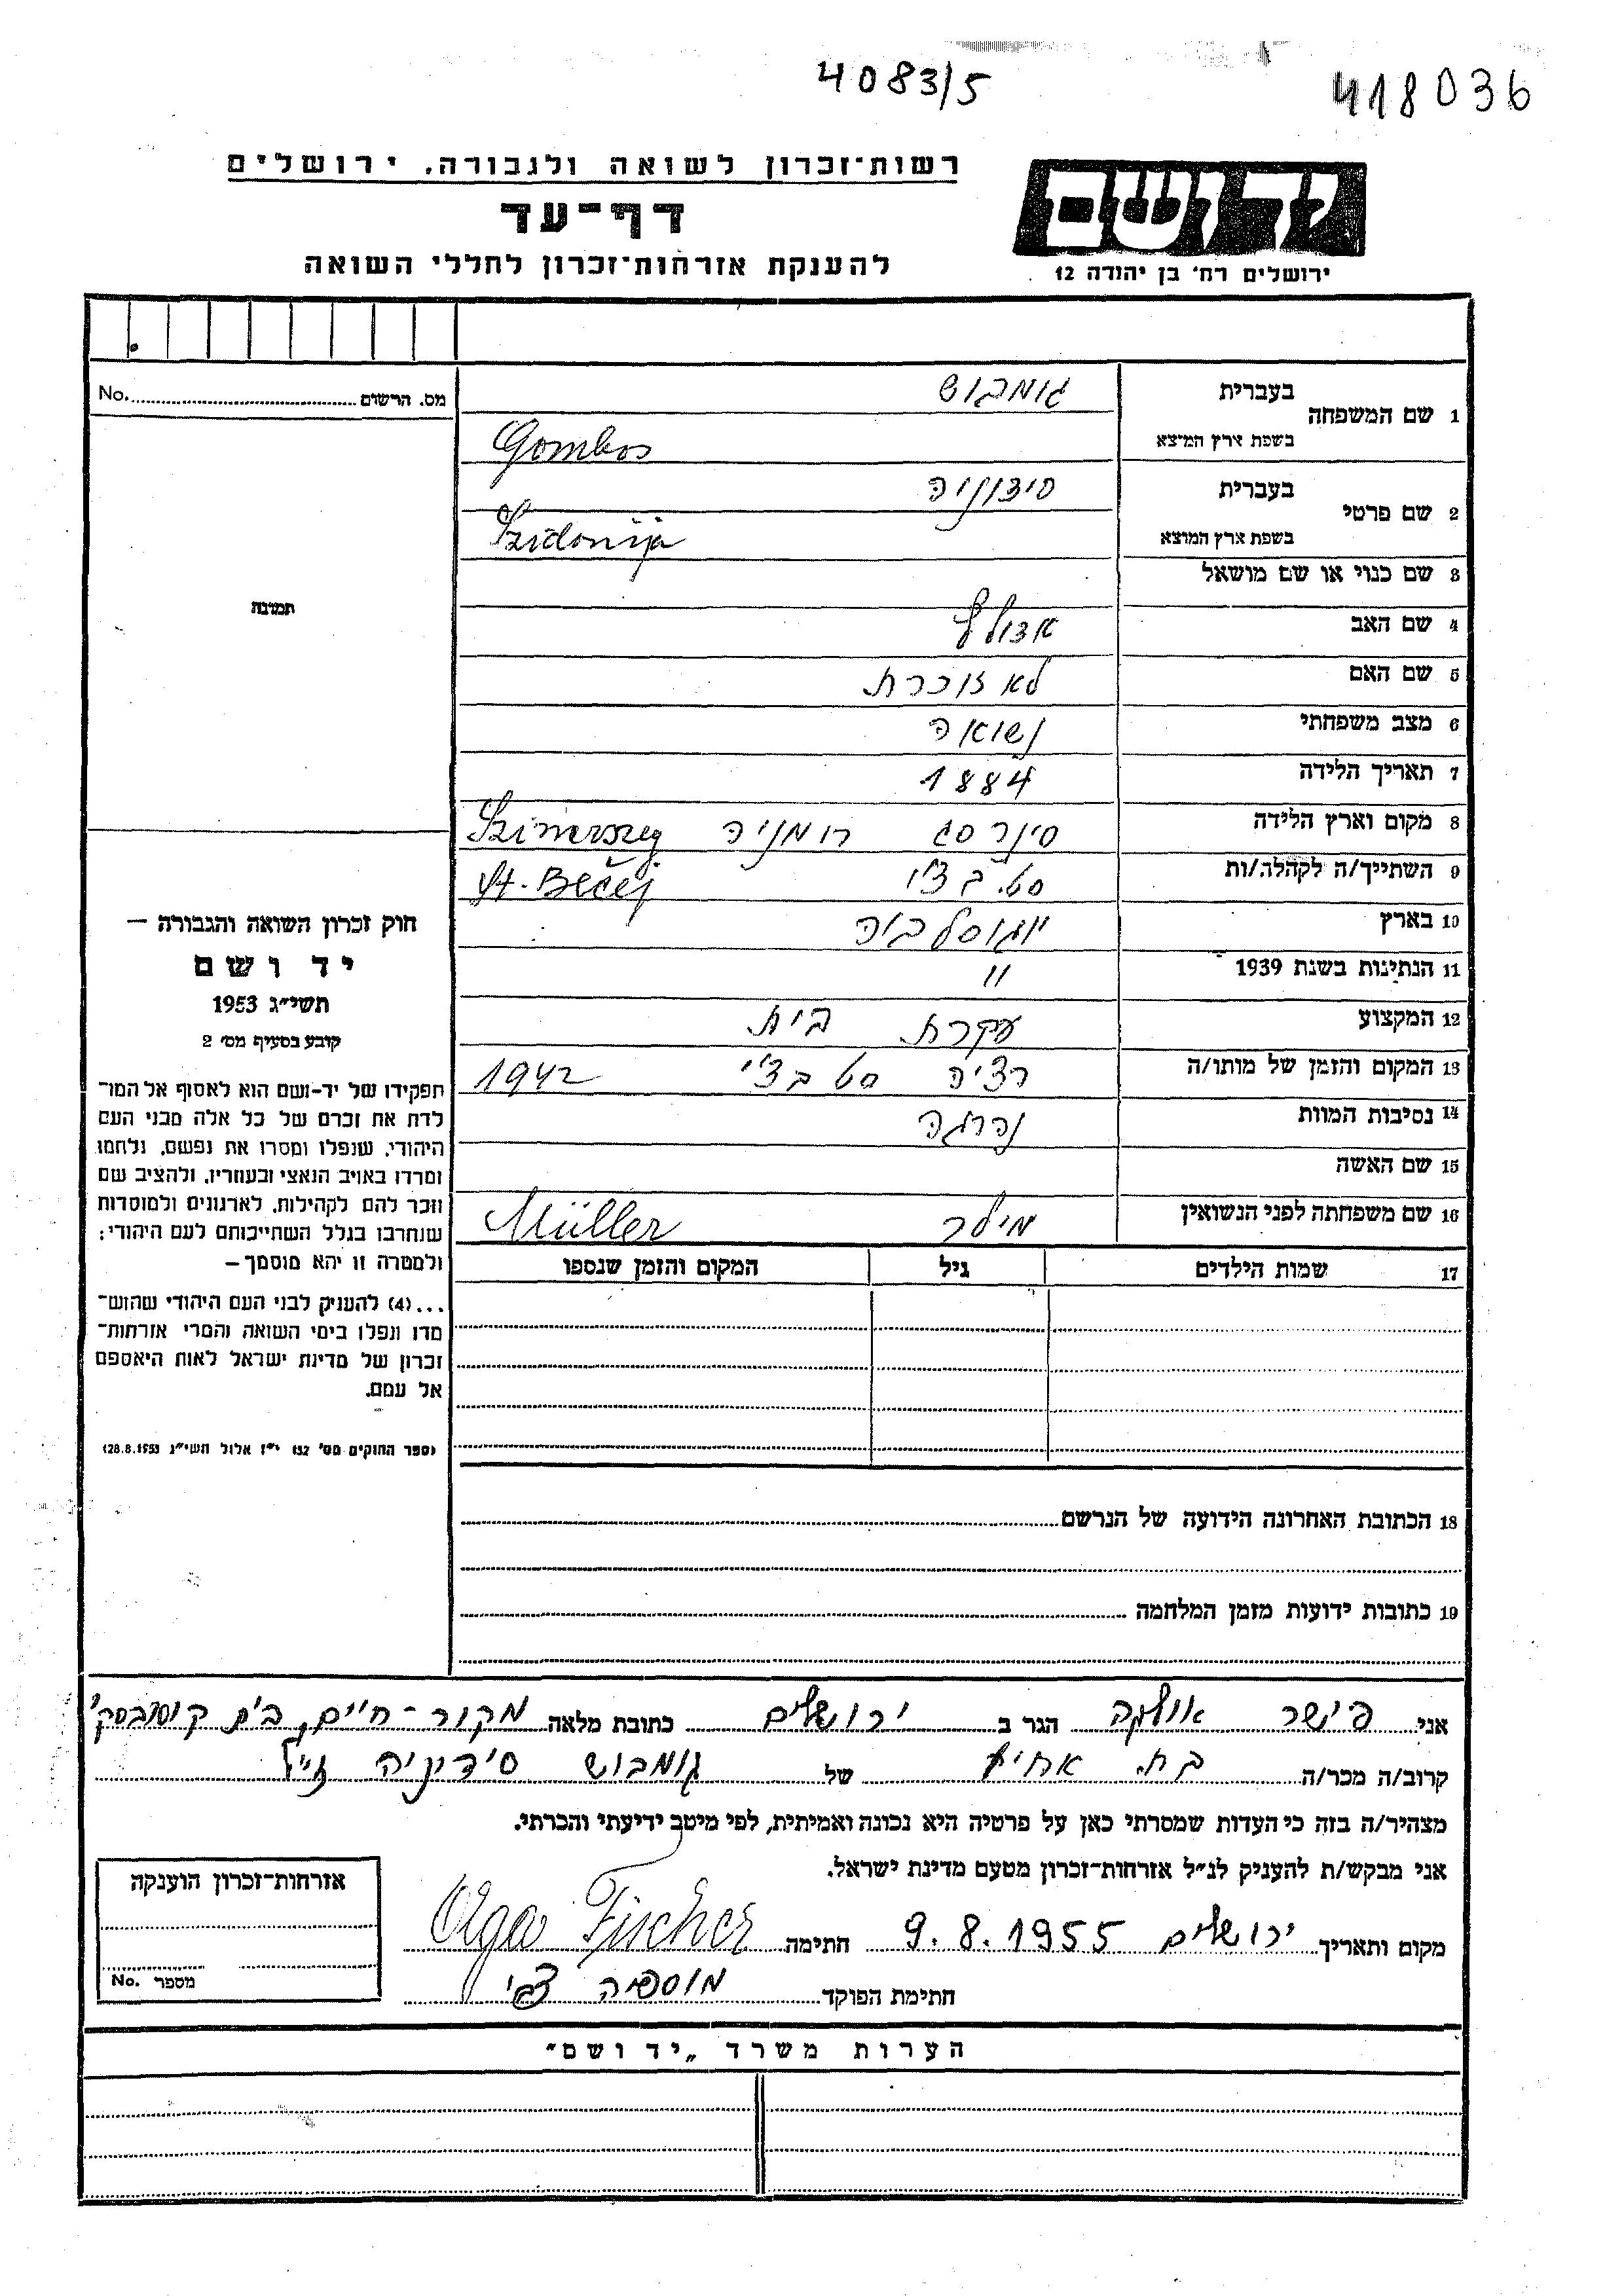 4083/5
418036
רשות־זכרון לשואה ולגבורה. ירושלים
דף־עד
להענקת אזרחות־זכרון לחללי השואה
יד ושם
ירושלים רח' בן יהודה 12
מס. הרשום No.
תמונה
בעברית גומבוש
1 שם המשפחה
בשפת ארץ המוצא Gombos
בעברית סידוניה
2 שם פרטי
בשפת ארץ המוצא Szidonija
3 שם כנוי או שם מושאל
4 שם האב אדולף
5 שם האם לא זוכרת
6 מצב משפחתי נשואה
7 תאריך הלידה 1884
8 מקום וארץ הלידה רומניה
9 השתייך/ה לקהלה/ות סט. בצ'י St. Bečej
10 בארץ יוגוסלביה
11 הנתינות בשנת 1939 "
12 המקצוע עקרת בית
13 המקום והזמן של מותו/ה סט בצ'י 1942
14 נסיבות המוות נהרגה
15 שם האשה
16 שם משפחתה לפני הנשואין מילר Müller
17 שמות הילדים גיל המקום והזמן שנספו
18 הכתובת האחרונה הידועה של הנרשם
19 כתובות ידועות מזמן המלחמה
חוק זכרון השואה והגבורה –
יד ושם
תשי"ג 1953
קובע בסעיף מס' 2
תפקידו של יד-ושם הוא לאסוף אל המו־
לדת את זכרם של כל אלה מבני העם
היהודי, שנפלו ומסרו את נפשם, נלחמו
ומרדו באויב הנאצי ובעוזריו, ולהציב שם
וזכר להם לקהילות, לארגונים ולמוסדות
שנחרבו בגלל השתייכותם לעם היהודי;
ולמטרה זו יהא מוסמך –
...(4) להעניק לבני העם היהודי שהוש־
מדו ונפלו בימי השואה והמרי אזרחות־
זכרון של מדינת ישראל לאות היאספם
אל עמם.
(ספר החוקים מס' 132 י"ז אלול תשי"ג 28.8.1953)
אני פישר אולגה הגר ב ירושלים כתובת מלאה מקור-חיים, בית
קרוב/ה מכר/ה בת אחיה של גומבוש סידוניה ז"ל
מצהיר/ה בזה כי העדות שמסרתי כאן על פרטיה היא נכונה ואמיתית, לפי מיטב ידיעתי והכרתי.
אני מבקש/ת להעניק לנ"ל אזרחות־זכרון מטעם מדינת ישראל.
מקום ותאריך ירושלים 9.8.1955 חתימה Olga Fischer
חתימת הפוקד צבי
אזרחות־זכרון הוענקה
מספר No.
הערות משרד „יד ושם"